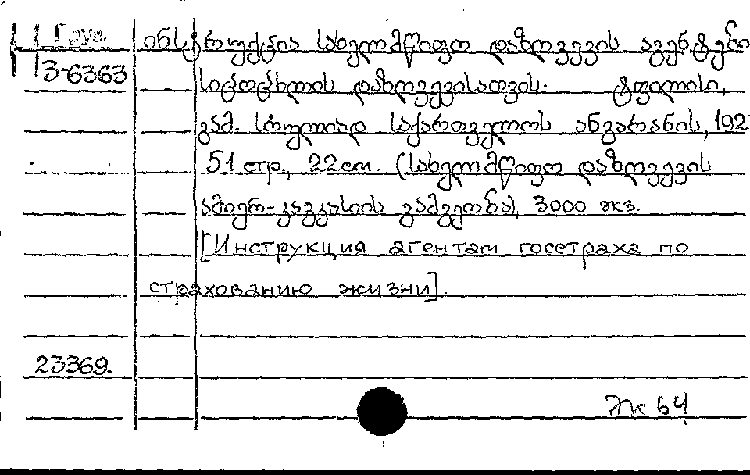 Груз. ინსტრუქცია სახელმწიფო დაზღვევის აგენტებს
3-6363 სიცოცხლის დაზღვევისათვის. ტფილისი,
გამ. სრულიად საქართველოს ანგარანის, 192
51 стр., 22 см. (სახელმწიფო დაზღვევის
ამიერ-კავკასიის გამგეობა), 3000 экз.
[Инструкция агентам госстраха по
страхованию жизни].
23369.
Жк 64